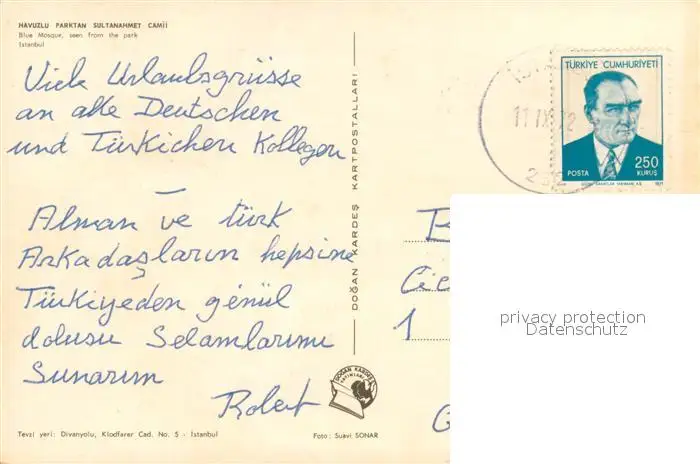 HAVUZLU PARKTAN SULTANAHMET CAMİİ
Blue Mosque, seen from the park
İstanbul
Viele Urlaubsgrüsse
an alle Deutschen
und Türkichen Kollegen
—
Alman ve türk
Arkadaşların hepsine
Türkiyeden gönül
dolusu Selamlarımı
Sunarım
Robert
Tevzi yeri: Divanyolu, Klodfarer Cad. No. 5 - İstanbul
DOĞAN KARDEŞ KARTPOSTALLARI
DOĞAN KARDEŞ
YAYINLARI
Foto: Suavi SONAR
11 IX 72
TÜRKİYE CUMHURİYETİ
250
KURUŞ
POSTA
1971
1
privacy protection
Datenschutz